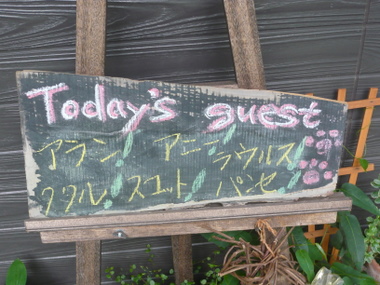 Today's guest
アラン! アニー! ラウルス!
ククル! スコット! パンセ!